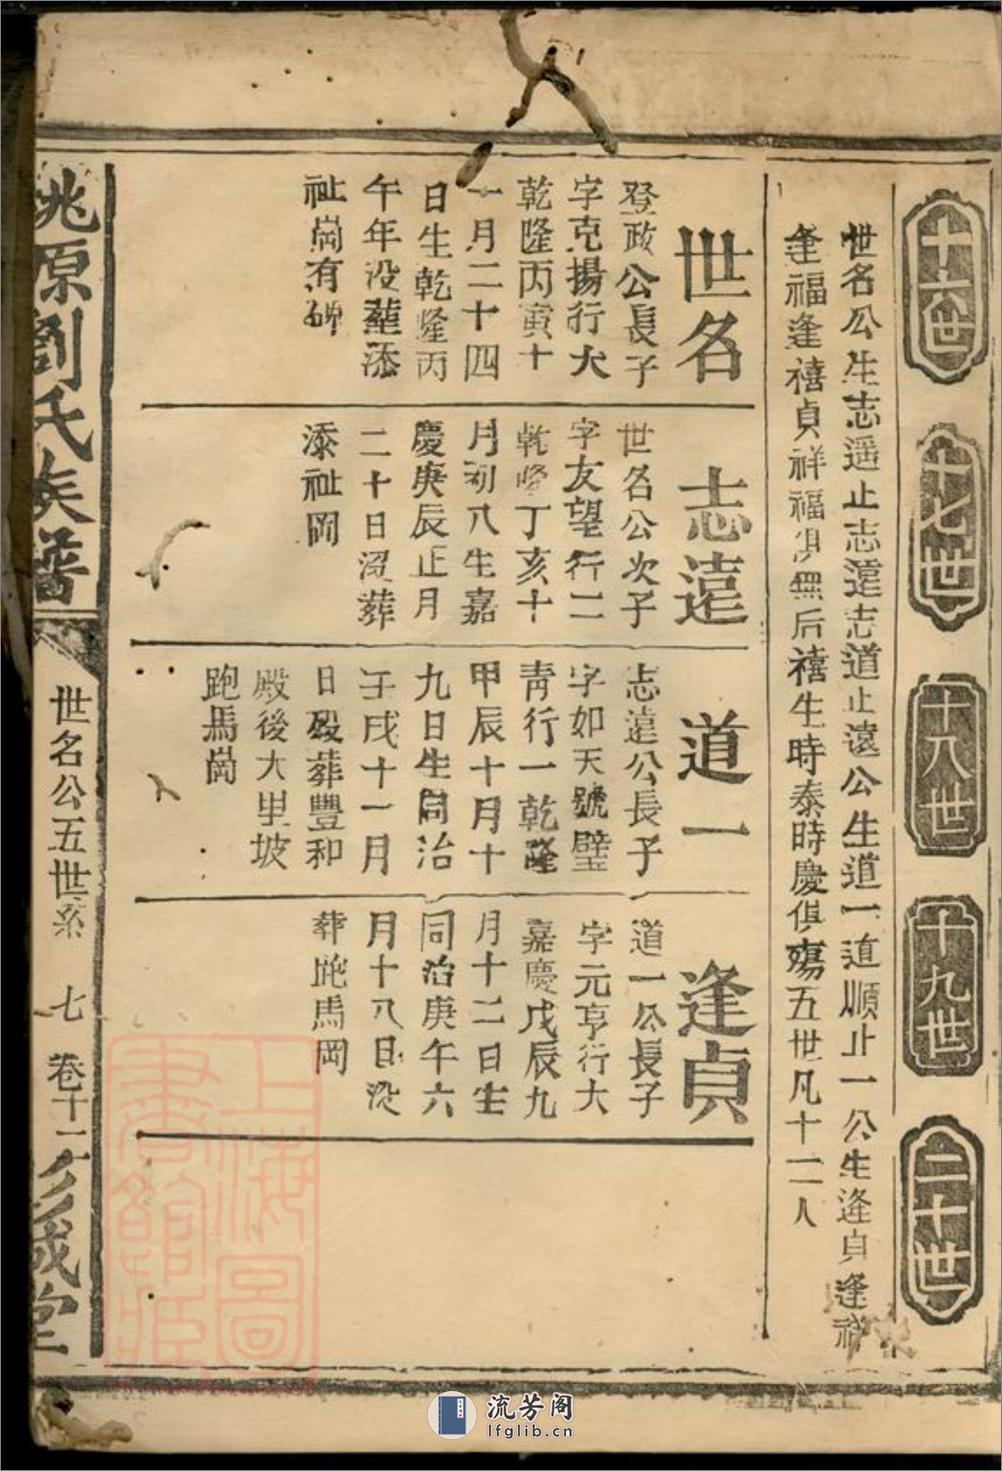 十六世
十七世
十八世
十九世
二十世
世名公生志遥止志遠志道止遠公生道一道順止一公生逢貞逢祥
逢福逢禧貞祥福俱無后禧生時泰時慶俱殤五世凡十二人
世名
登政公長子
字克揚行大
乾隆丙寅十
一月二十四
日生乾隆丙
午年没塟添
祉崗有碑
志遠
世名公次子
字友望行二
乾隆丁亥十
月初八生嘉
慶庚辰正月
二十日没葬
添祉岡
道一
志遠公長子
字如天號壁
青行一乾隆
甲辰十月十
九日生同治
壬戌十一月
日殁葬豐和
殿後大里坡
跑馬崗
逢貞
道一公長子
字元亨行大
嘉慶戊辰九
月十二日生
同治庚午六
月十八日没
葬跑馬岡
桃原劉氏族譜
世名公五世系 七 卷十二
上海圖書館藏
流芳阁
lfglib.cn